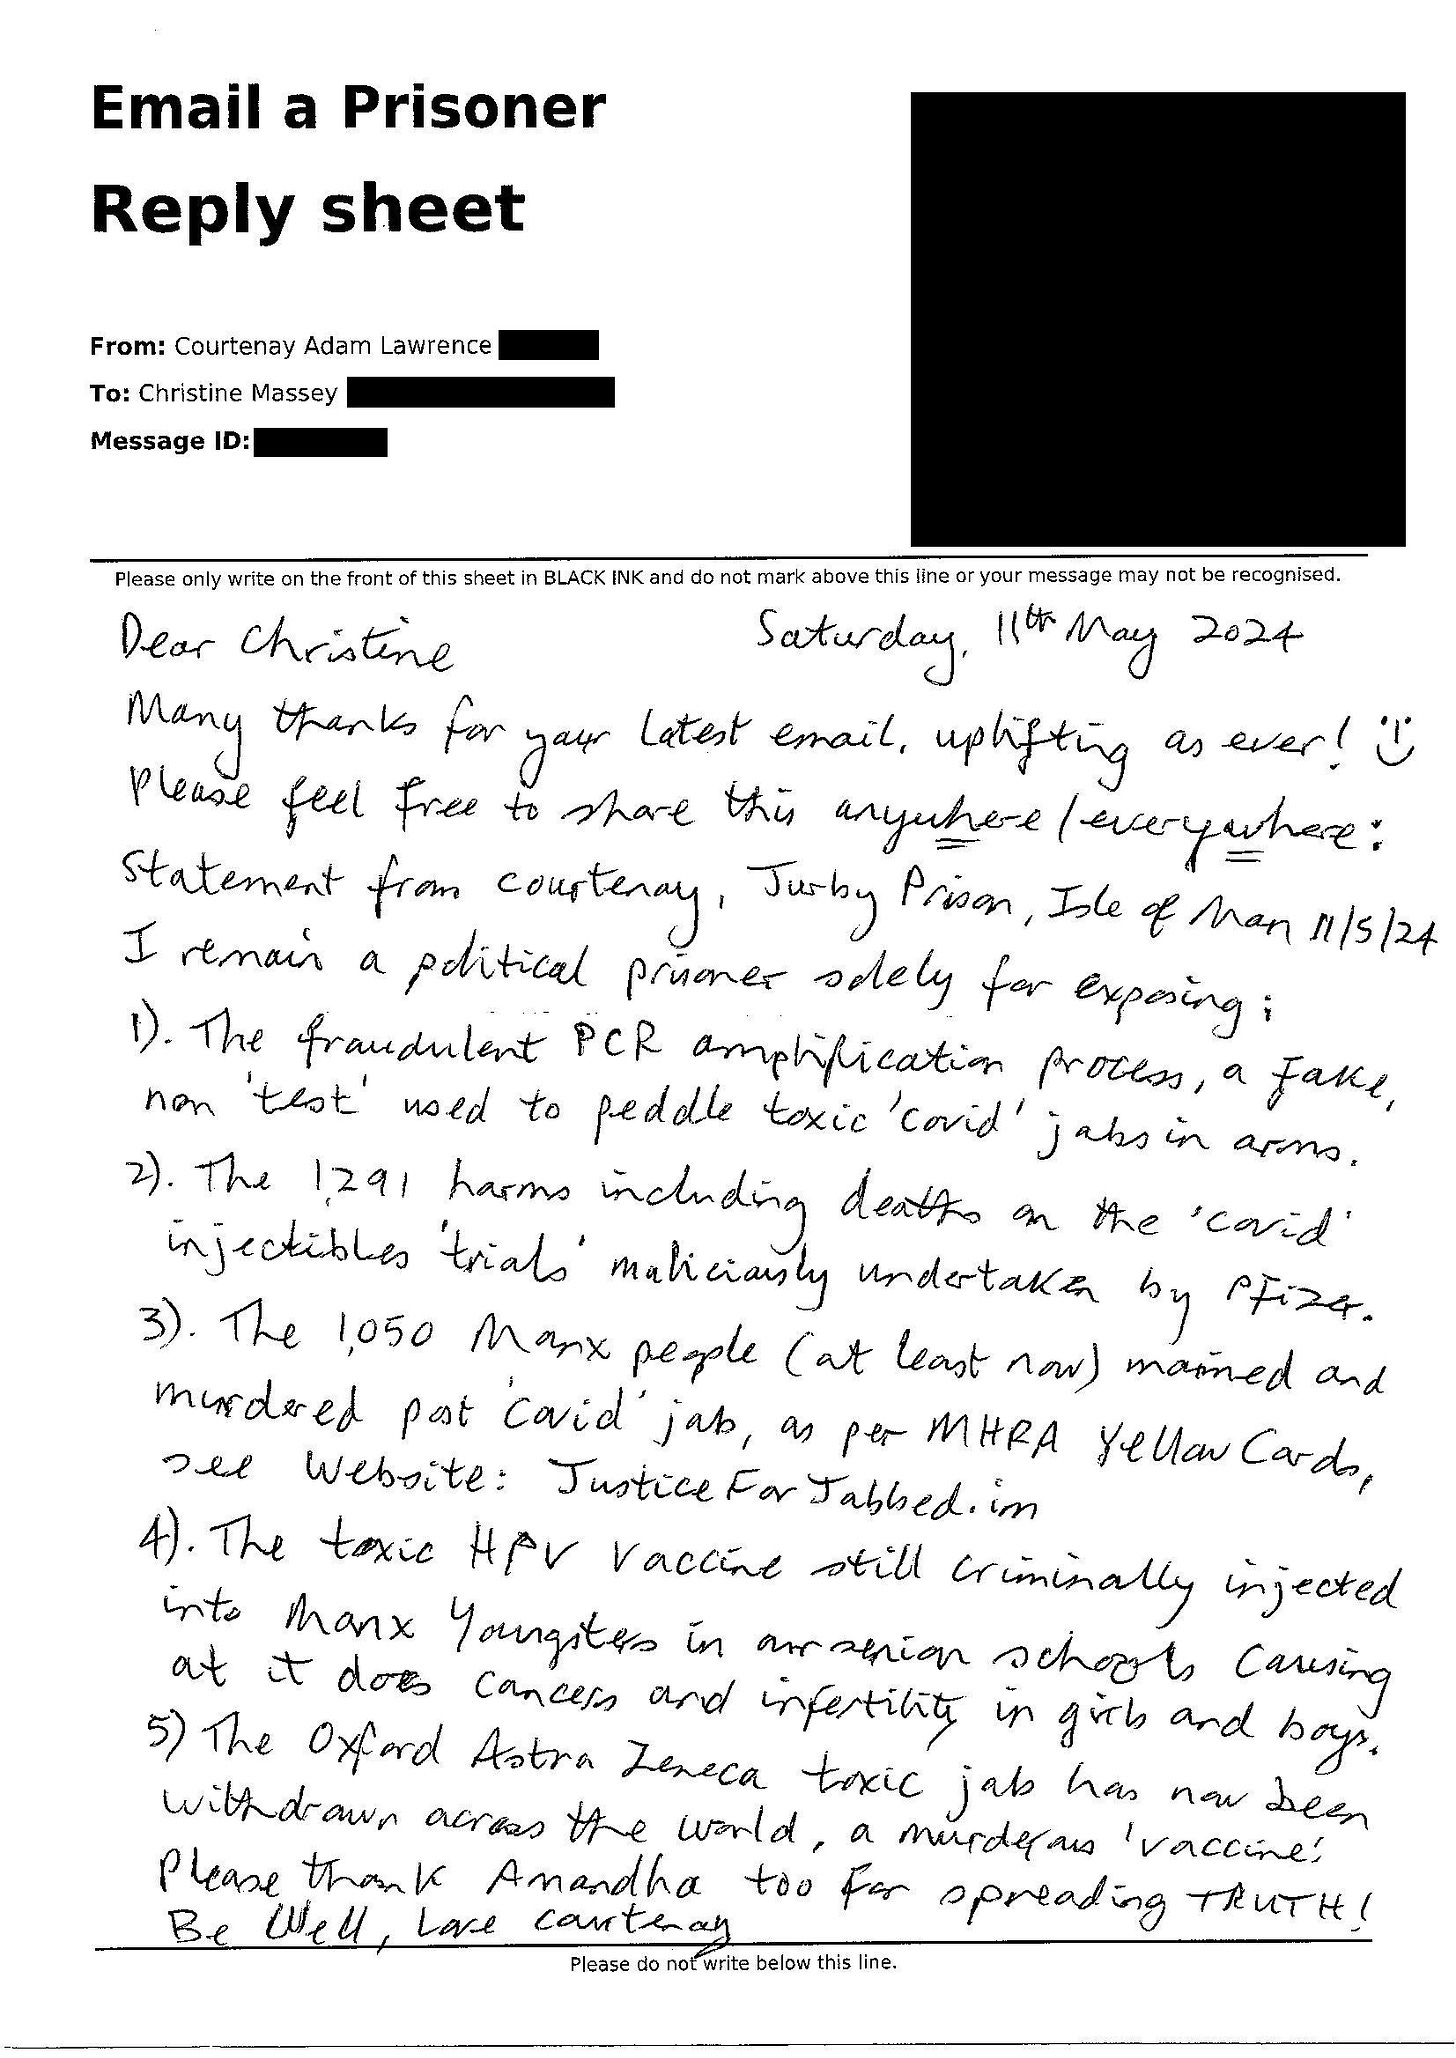 Email a Prisoner
Reply sheet
From: Courtenay Adam Lawrence
To: Christine Massey
Message ID:
Please only write on the front of this sheet in BLACK INK and do not mark above this line or your message may not be recognised.
Dear Christine Saturday, 11th May 2024
Many thanks for your latest email, uplifting as ever!
Please feel free to share this anywhere/everywhere:
Statement from Courtenay, Jurby Prison, Isle of Man 11/5/24
I remain a political prisoner solely for exposing:
1). The fraudulent PCR amplification process, a fake,
non 'test' used to peddle toxic 'covid' jabs in arms.
2). The 1,291 harms including deaths on the 'covid'
injectibles 'trials' maliciously undertaken by Pfizer.
3). The 1,050 Manx people (at least now) maimed and
murdered post 'covid' jab, as per MHRA Yellow Cards,
see Website: JusticeForJabbed.im
4). The toxic HPV Vaccine still criminally injected
into Manx Youngsters in our senior schools causing
at it does cancers and infertility in girls and boys.
5) The Oxford Astra Zeneca toxic jab has now been
withdrawn across the world, a murderous 'vaccine'.
Please thank Amandha too for spreading TRUTH!
Be Well, Love Courtenay
Please do not write below this line.